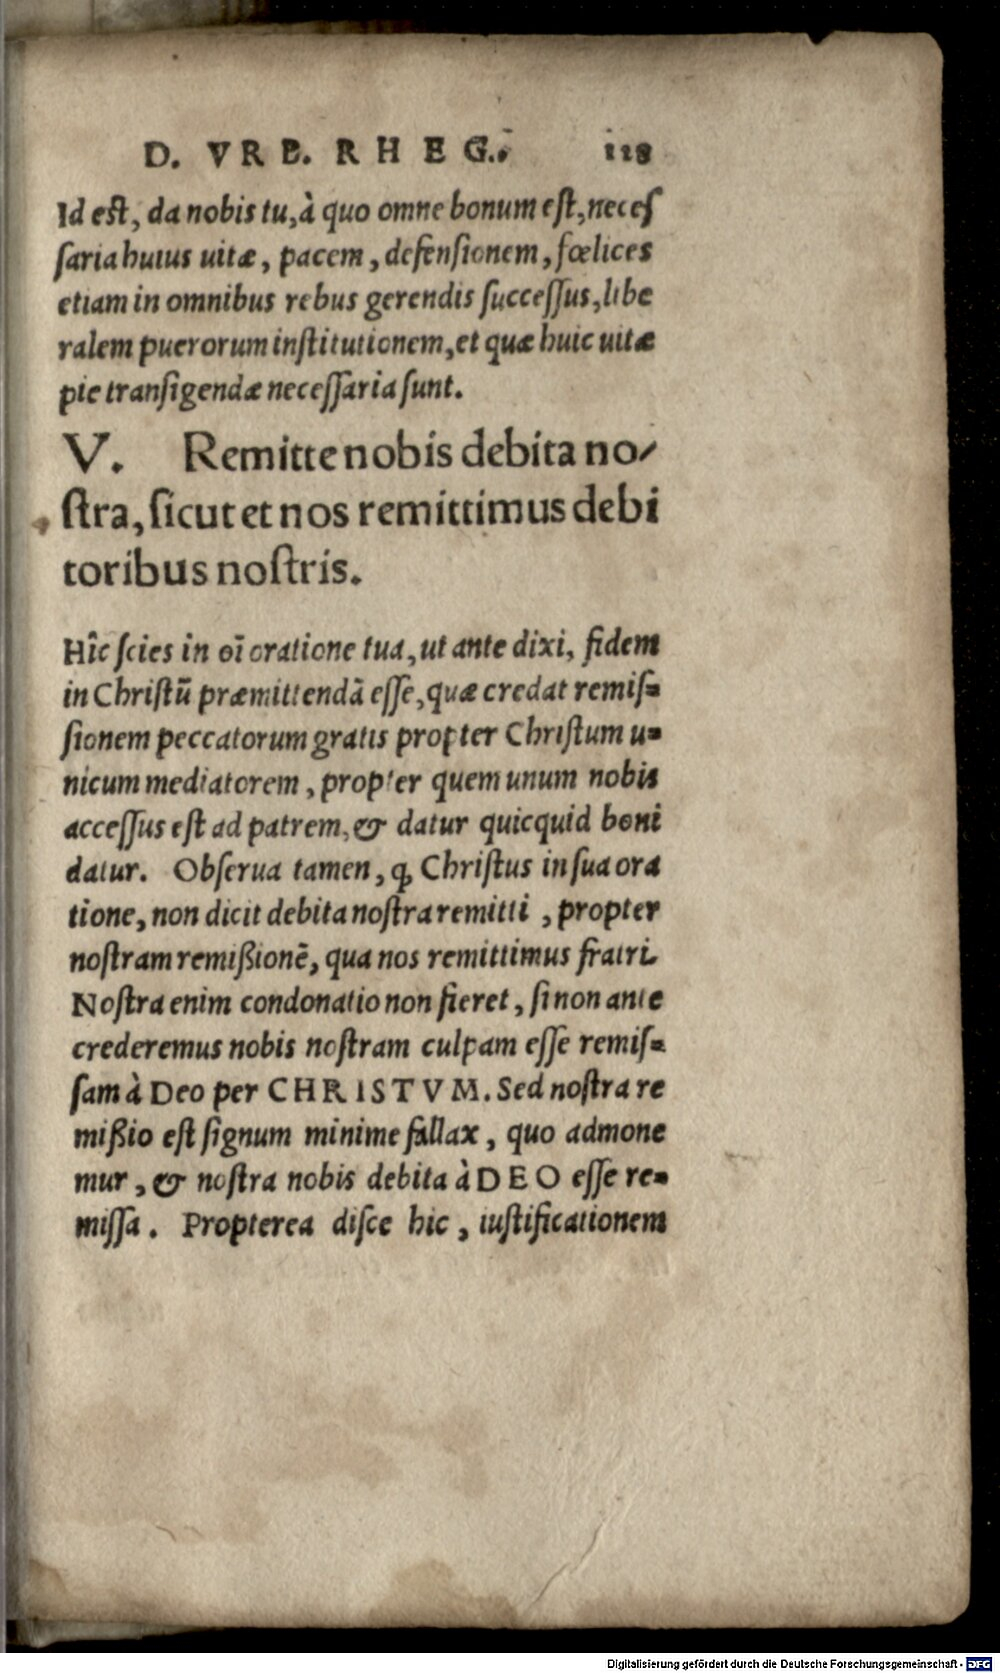 D. VRB. RHEG. 118
Id est, da nobis tu, à quo omne bonum est, neces
saria huius uitæ, pacem, defensionem, fœlices
etiam in omnibus rebus gerendis successus, libe
ralem puerorum institutionem, et quæ huic uitæ
pie transigendæ necessaria sunt.
V. Remitte nobis debita no-
stra, sicut et nos remittimus debi
toribus nostris.
Hîc scies in oĩ oratione tua, ut ante dixi, fidem
in Christũ præmittendã esse, quæ credat remis-
sionem peccatorum gratis propter Christum u-
nicum mediatorem, propter quem unum nobis
accessus est ad patrem, & datur quicquid boni
datur. Obserua tamen, ꝙ Christus in sua ora
tione, non dicit debita nostra remitti, propter
nostram remißionẽ, qua nos remittimus fratri.
Nostra enim condonatio non fieret, si non ante
crederemus nobis nostram culpam esse remis-
sam à Deo per CHRISTVM. Sed nostra re
mißio est signum minime fallax, quo admone
mur, & nostra nobis debita à DEO esse re-
missa. Propterea disce hic, iustificationem
Digitalisierung gefördert durch die Deutsche Forschungsgemeinschaft - DFG